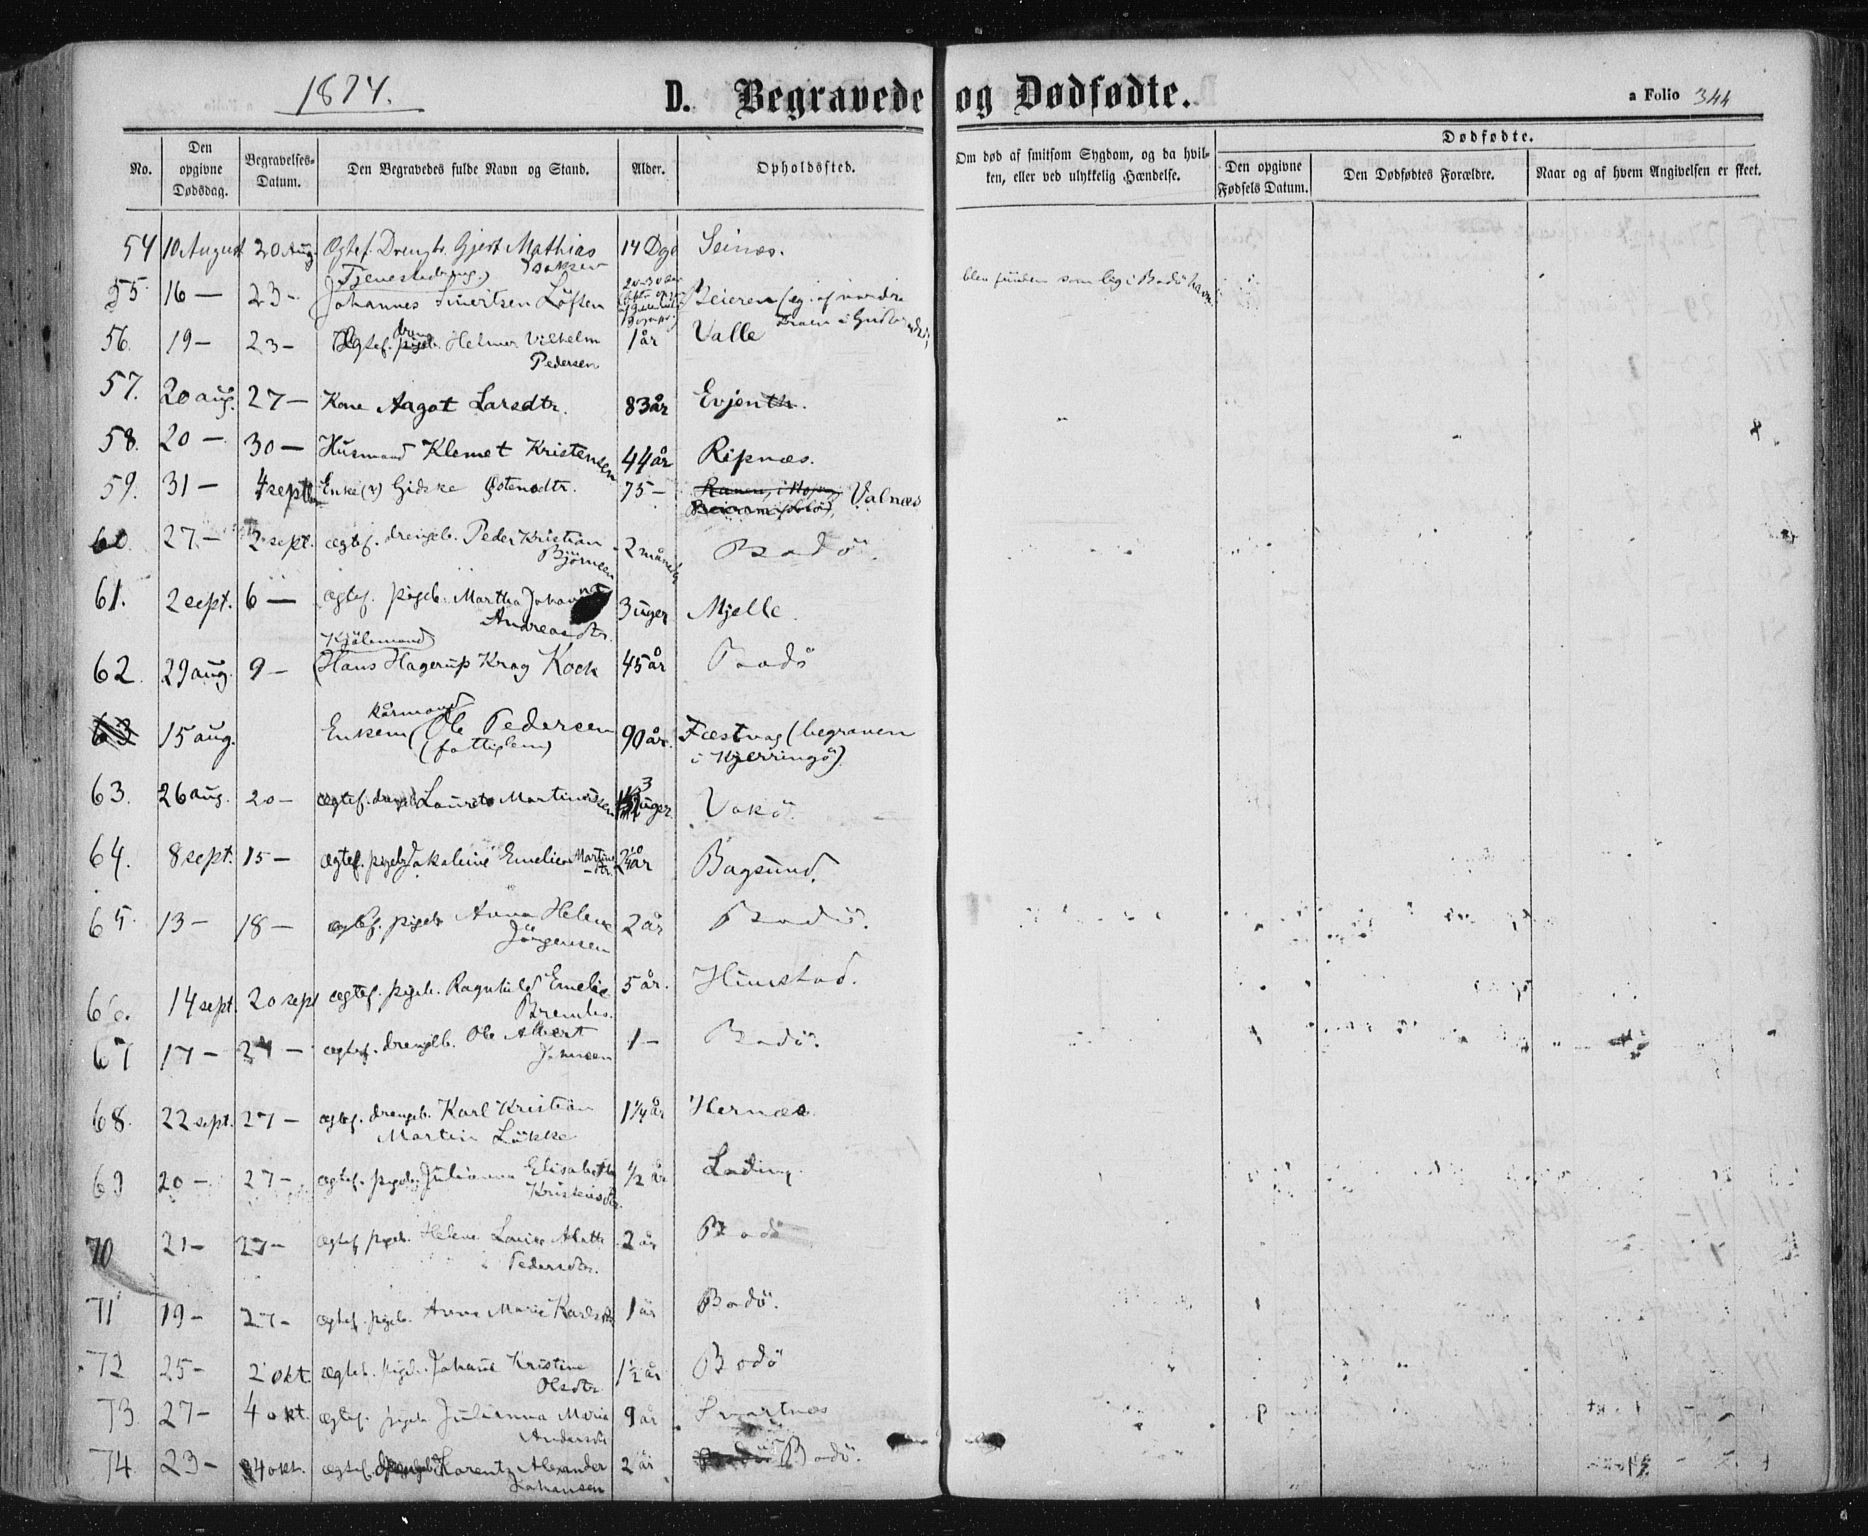 1874.
D. Begravede og Dødfødte.
a Folio 344
No.
Den opgivne Dødsdag.
Begravelses-Datum.
Den Begravedes fulde Navn og Stand.
Alder.
Opholdssted.
Om død af smitsom Sygdom, og da hvilken, eller ved ulykkelig Hændelse.
Dødfødte.
Den opgivne Fødsels Datum.
Den Dødfødtes Forældre.
Naar og af hvem Angivelsen er skeet.
54 10 August 20 Aug. Ægtef. Drengb. Gjert Mathias 14 Dge Seinæs.
55 16 — 23 — Johannes Löften Beieren blev funden som lig i Bodö havn
56. 19 — 23 — Ægtef. dreng Helmer Vilhelm Pedersen 1 år Valle
57. 20 aug. 27 — Kone Aagot Larsdtr. 83 år Evjenth.
58. 20 — 30 — Husmand Klemet Kristensen 44 år Ripnæs.
59. 31 — 4 septbr Enke(r) Gidske Östensdtr. 75 — Valnæs
60. 27. — 2 sept. ægtef. drengeb. Peder Kristian Björnsen 2 måneder Bodö.
61. 2 sept. 6 — ægtef. pigeb. Martha Johanna Andreasdtr. 3 uger Mjelle.
62. 29 aug. 9 — Kjöbmand (Hans Hagerup Krag Kock 45 år Bodö
63 15 aug. Enkem (kårmand Ole Pedersen (fattiglem) 90 år. Fæstvag (begraven i Kjerringö)
63. 26 aug. 20 — ægtef. drengeb. Laurits Martinussen 3 uger Vakö.
64. 8 sept. 15 — ægtef. pigeb. Jakobine Emelie Martinsdtr. 2¼ år Bagsund.
65. 13 — 18 — ægtef. pigeb. Anna Helene Jörgensen 2 år Bodö.
66. 14 sept. 20 sept ægtef. pigeb. Ragnhild Emelie 5 år. Himstad.
67 17 — 24 — ægtef. drengeb. Ole Albert Jensen 1 — Bodö.
68. 22 sept. 27 — ægtef. drengeb. Karl Kristian Martin Lökke 1¼ år Hernæs.
69 20 — 27 — ægtef. pigeb. Julianna Elisabeth Kristensdtr. ½ år Löding
70 21 — 27 — ægtef. pigeb. Helene Lovise Pedersdtr. 2 år Bodö
71 19 — 27 — ægtef. pigeb. Anne Marie Karlsdtr. 1 år Bodö.
72 25 — 2 okt. ægtef. pigeb. Johane Kristine Olsdtr. 1½ år Bodö
73. 27 — 4 okt. ægtef. pigeb. Julianna Maria Andersdtr 9 år Svartnæs
74. 23 — 4 okt. ægtef. drengeb. Lorentz Alexander Johansen 2 år Bodö.